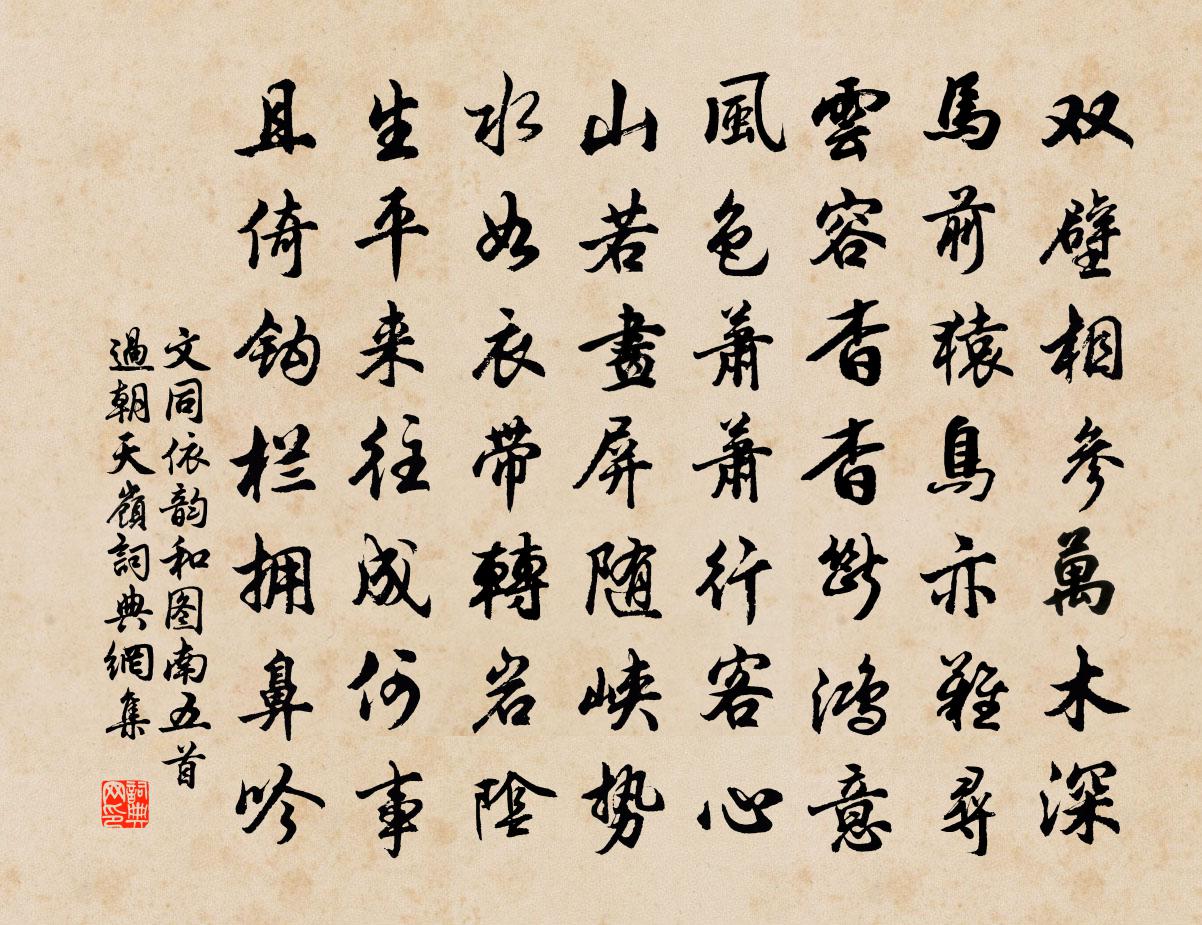 双壁相參萬木深
馬前猿鳥亦難尋
雲容杳杳斷鴻意
風色蕭蕭行客心
山若畫屏随峡势
水如衣带轉岩陰
生平来往成何事
且倚鈎栏拥鼻吟
文同依韵和图南五首
過朝天嶺詞典網集
詞典
网印